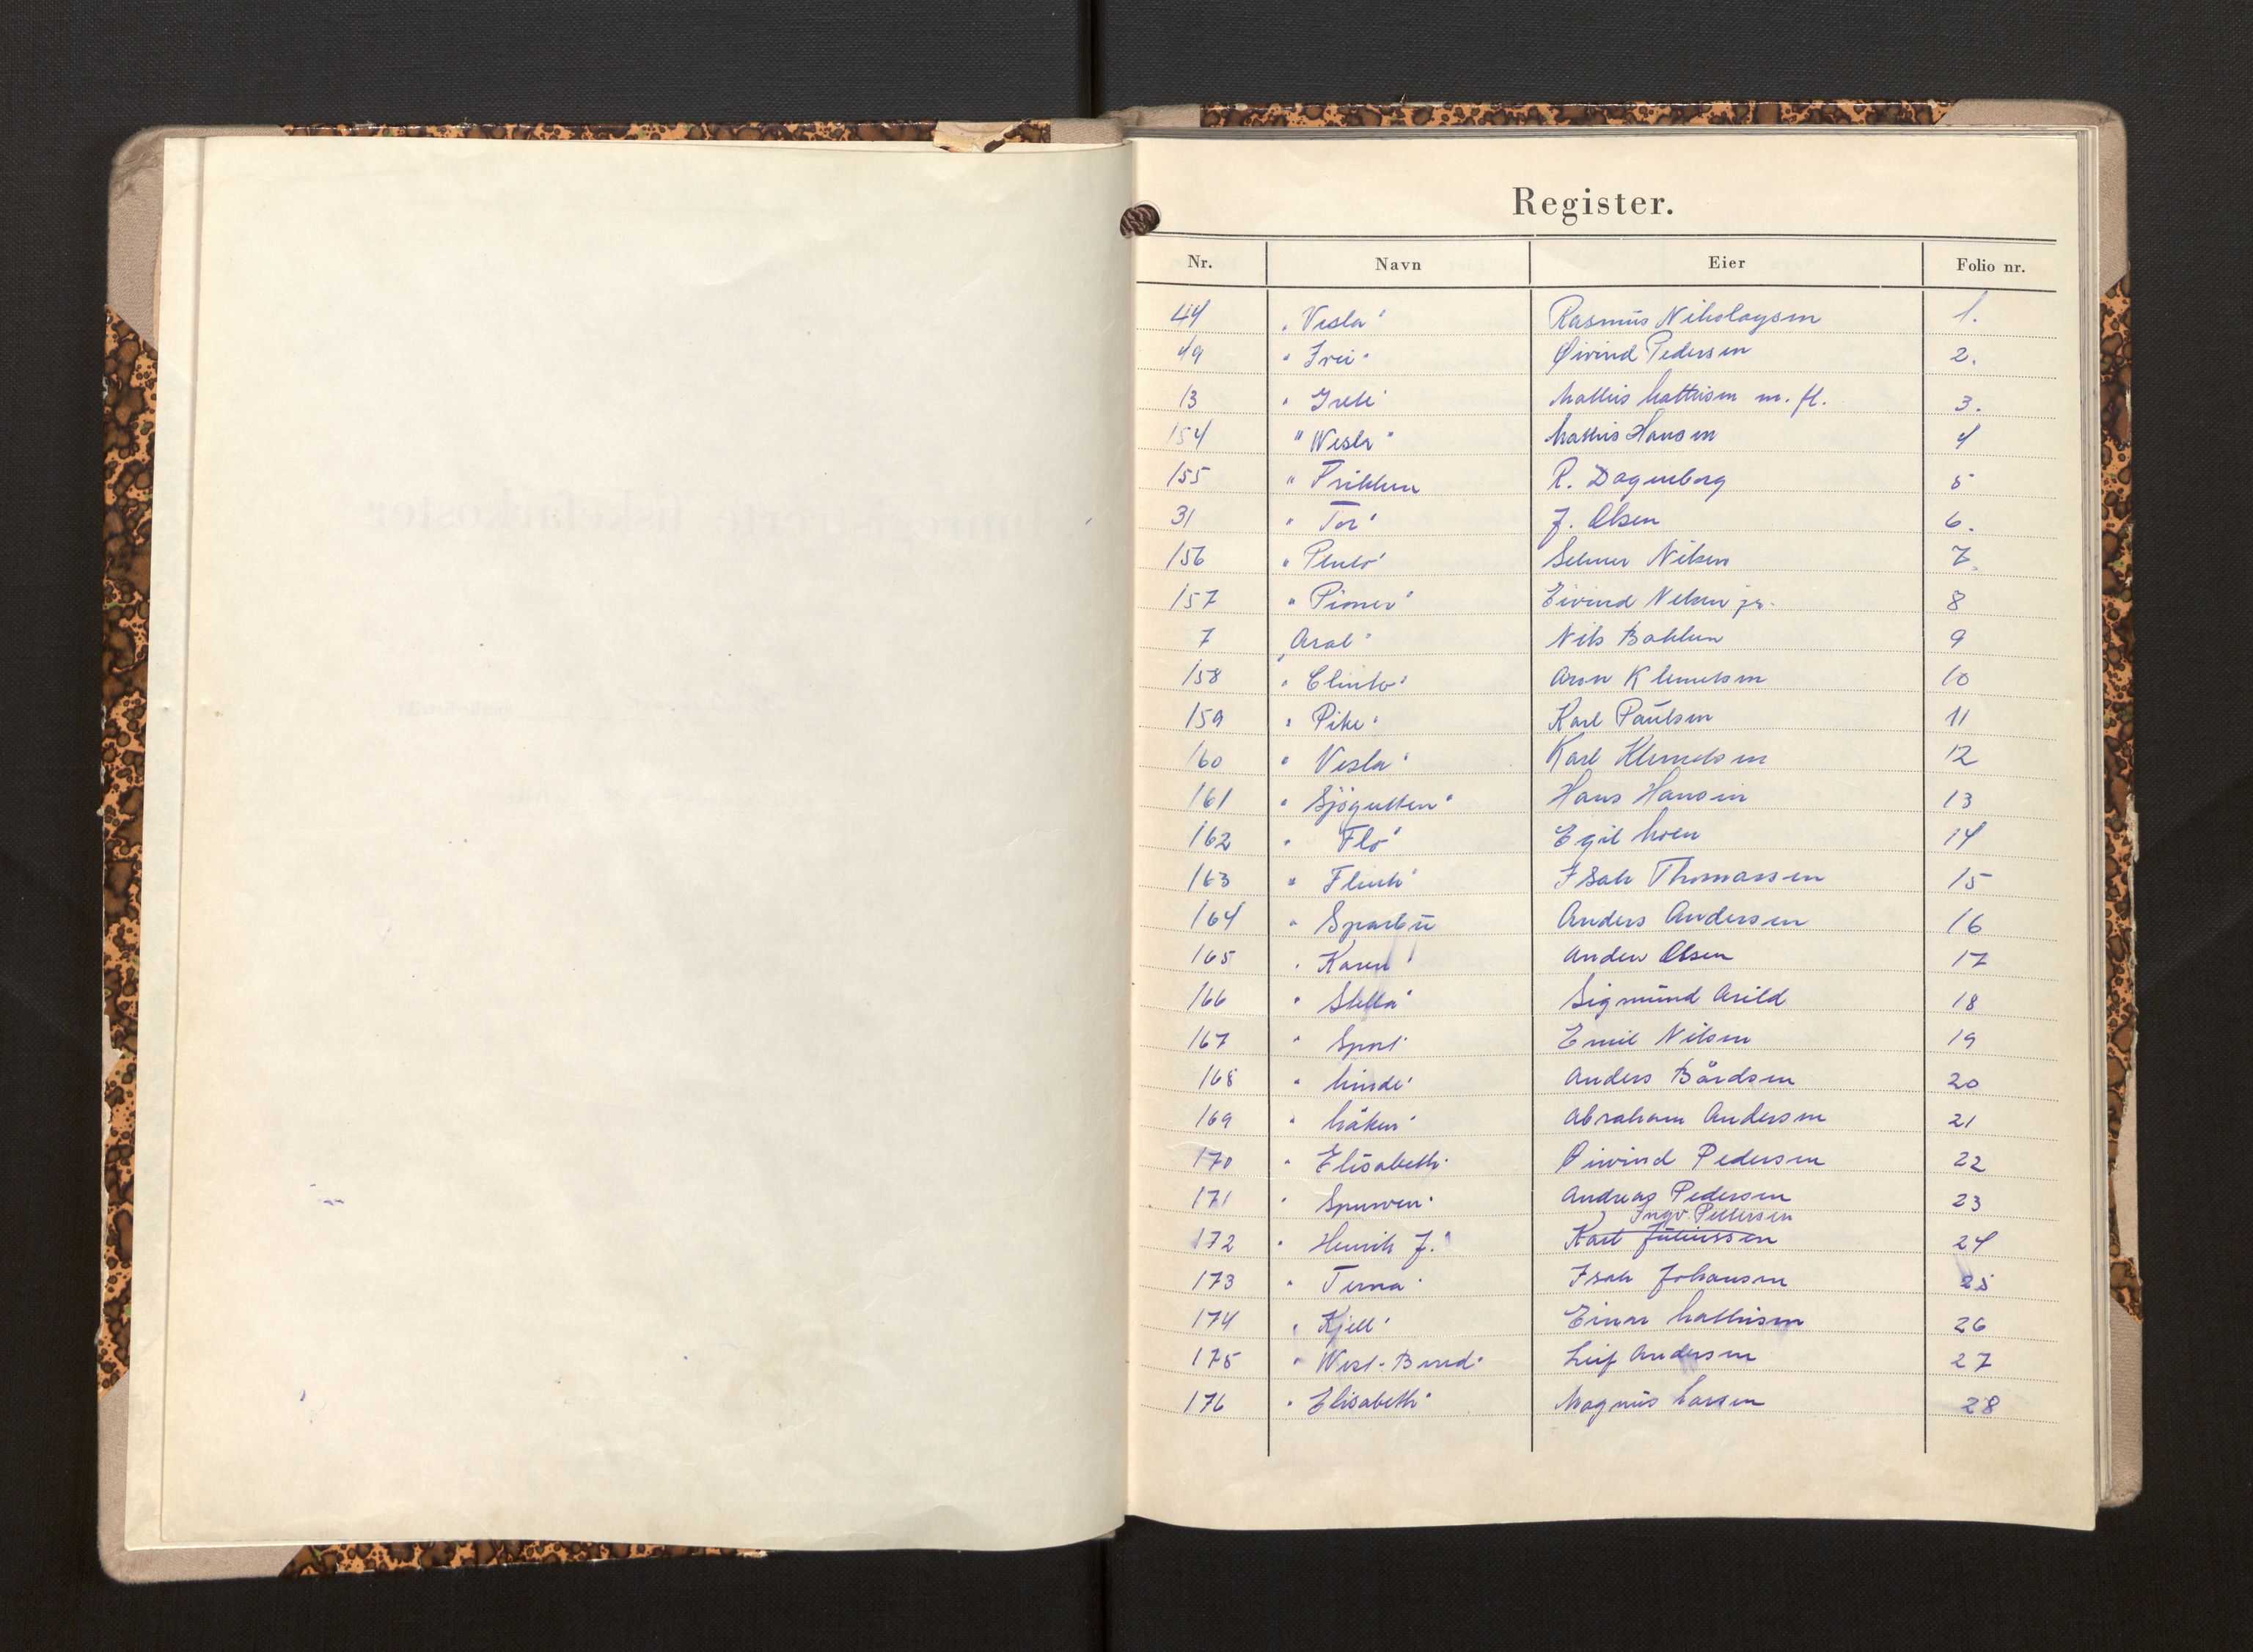 Register.
Nr. Navn Eier Folio nr.
44 "Vesla" Rasmus Nikolaysen 1.
49 "Frei" Øivind Pedersen 2.
13 "Grete" Mathis Mathisen m. fl. 3.
154 "Wesla" Mathis Hansen 4
155 "Prikken R. Dagenborg 5
31 "Tor" J. Olsen 6.
156 "Pluto" Selmer Nilsen 7.
157 "Pioner" Eivind Nilsen jr. 8
7 "Aral" Nils Bakken 9
158 Aron Klemetsen 10
159 "Pike" Karl Paulsen 11
160 "Vesla" Karl Klemetsen 12
161 "Sjögutten" Hans Hansen 13
162 "Flo" Egil Moen 14
163 Isak Thomassen 15
164 "Sparbu Anders Andersen 16
165 "Karen" Anders Olsen 17
166 "Stella" Sigmund Arild 18
167 "Sport" Emil Nilsen 19
168 "Minde" Anders Bårdsen 20
169 "Måken" Abraham Andersen 21
170 "Elisabeth" Øivind Pedersen 22
171 "Spurven" Andreas Pedersen 23
Ingv. Pettersen
172 "Henrik J." Karl Juliussen 24
173 "Terna" Isak Johansen 25
174 "Kjell" Einar Mathisen 26
175 "West-Bund" Leif Andersen 27
176 "Elisabeth" Magnus Larsen 28